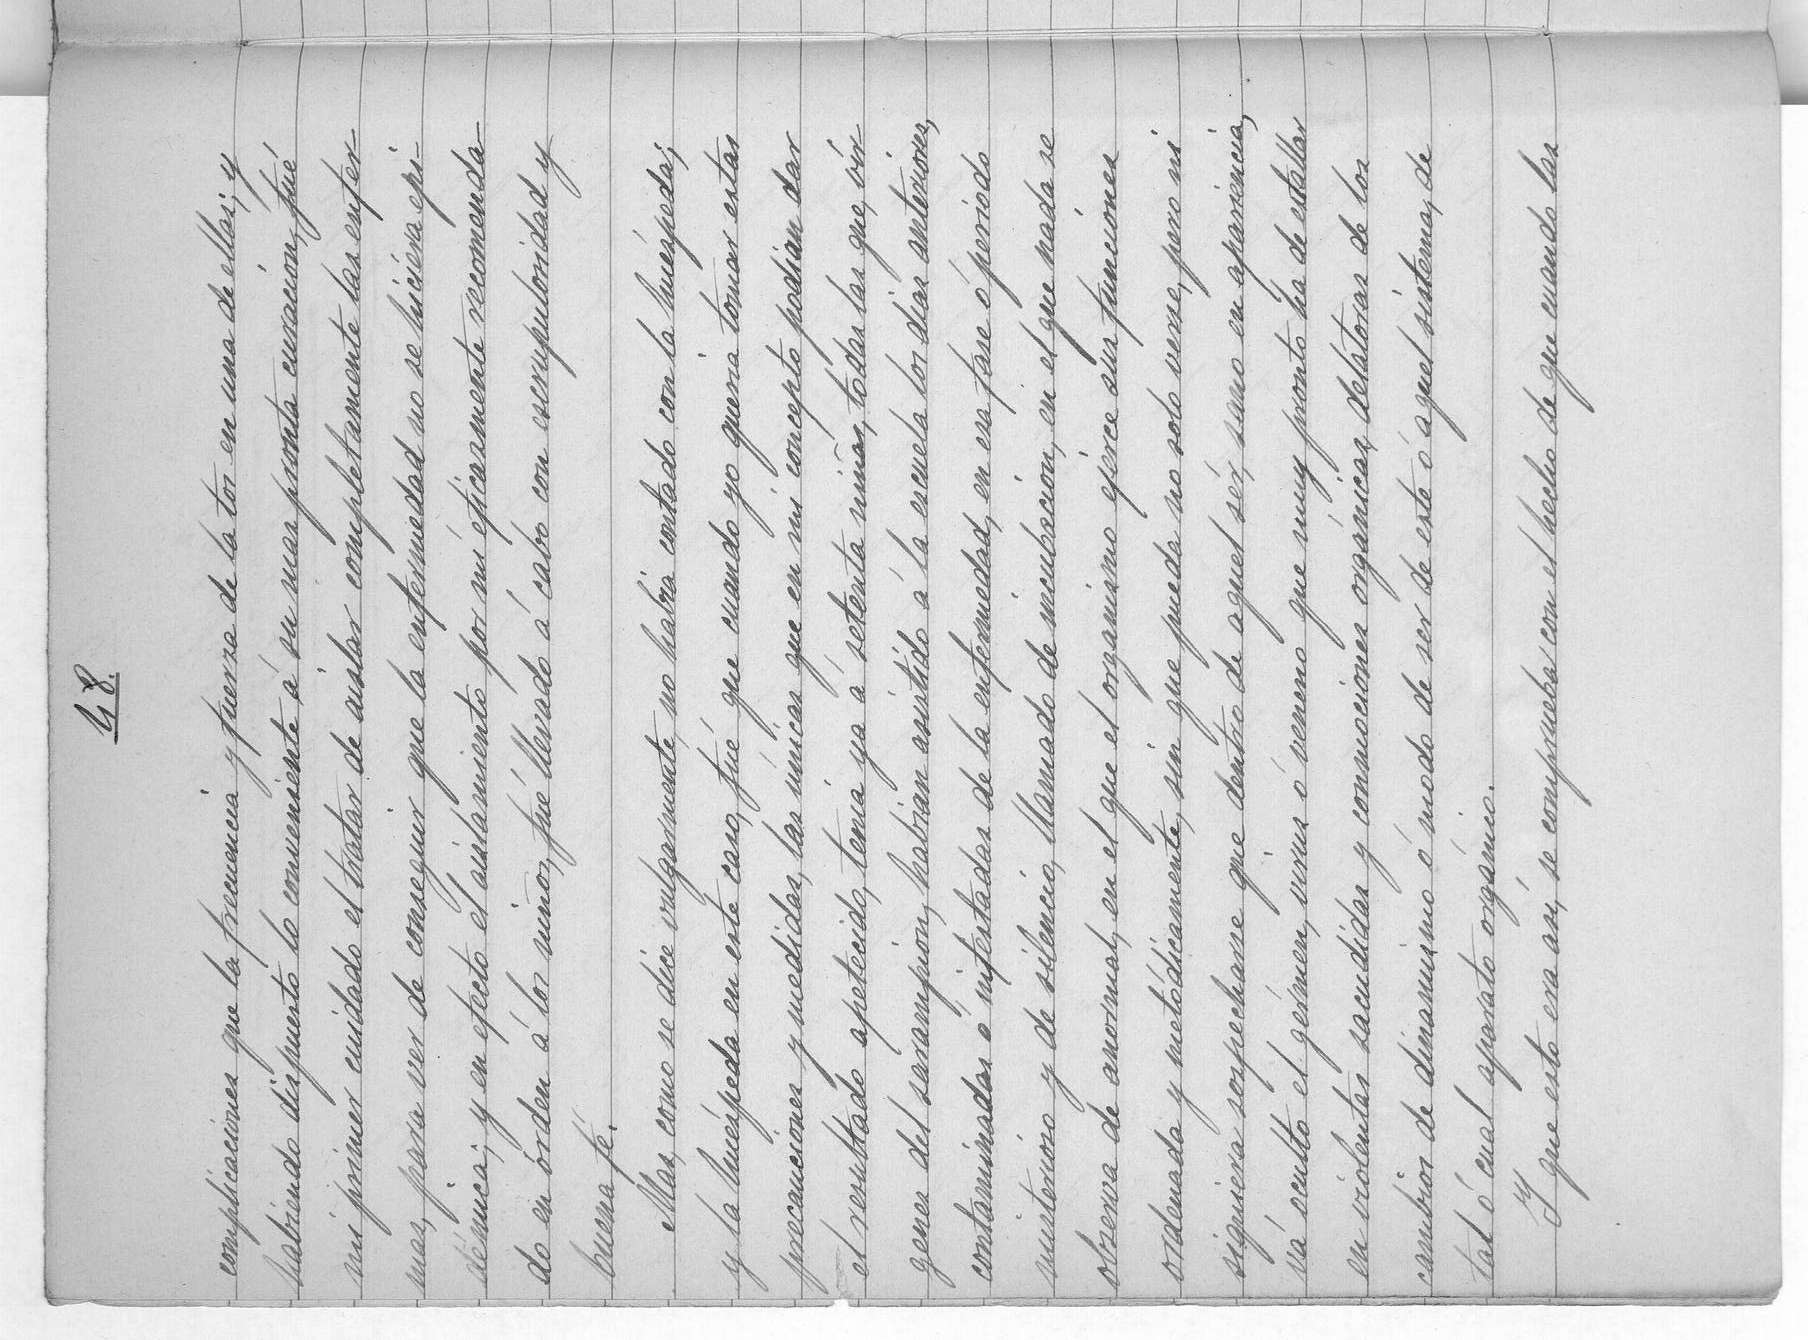 48.
complicaciones que la frecuencia y fuerza de la tos en una de ellas; y
habiendo dispuesto lo conveniente á su mas pronta curacion, fué
mi primer cuidado el tratar de aislar completamente las enfer-
mas, para ver de conseguir que la enfermedad no se hiciera epi-
démica; y en efecto el aislamiento por mi eficazmente recomenda-
do en órden á los niños, fué llevado á cabo con escrupulosidad y
buena fé.
Mas, como se dice vulgarmente, no habia contado con la huéspeda;
y la huéspeda en este caso, fué que cuando yo queria tomar estas
precauciones y medidas, las únicas que en mi concepto podian dar
el resultado apetecido, tenia ya á setenta niñas, todas las que, vír-
genes del sarampion, habian asistido á la escuela los dias anteriores,
contaminadas é infestadas de la enfermedad, en esa fase ó periodo
misterioso y de silencio, llamado de incubacion, en el que nada se
observa de anormal, en el que el organismo ejerce sus funciones
ordenada y metódicamente, sin que pueda no solo verse, pero ni
siquiera sospecharse que dentro de aquel sér, sano en apariencia,
vá oculto el gérmen, virus ó veneno que muy pronto ha de estallar
en violentas sacudidas y conmociones orgánicas, delatoras de los
cambios de dinamismo ó modo de ser de este ó aquel sistema, de
tal ó cual aparato orgánico.
Y que esto era asi, se comprueba con el hecho de que cuando las